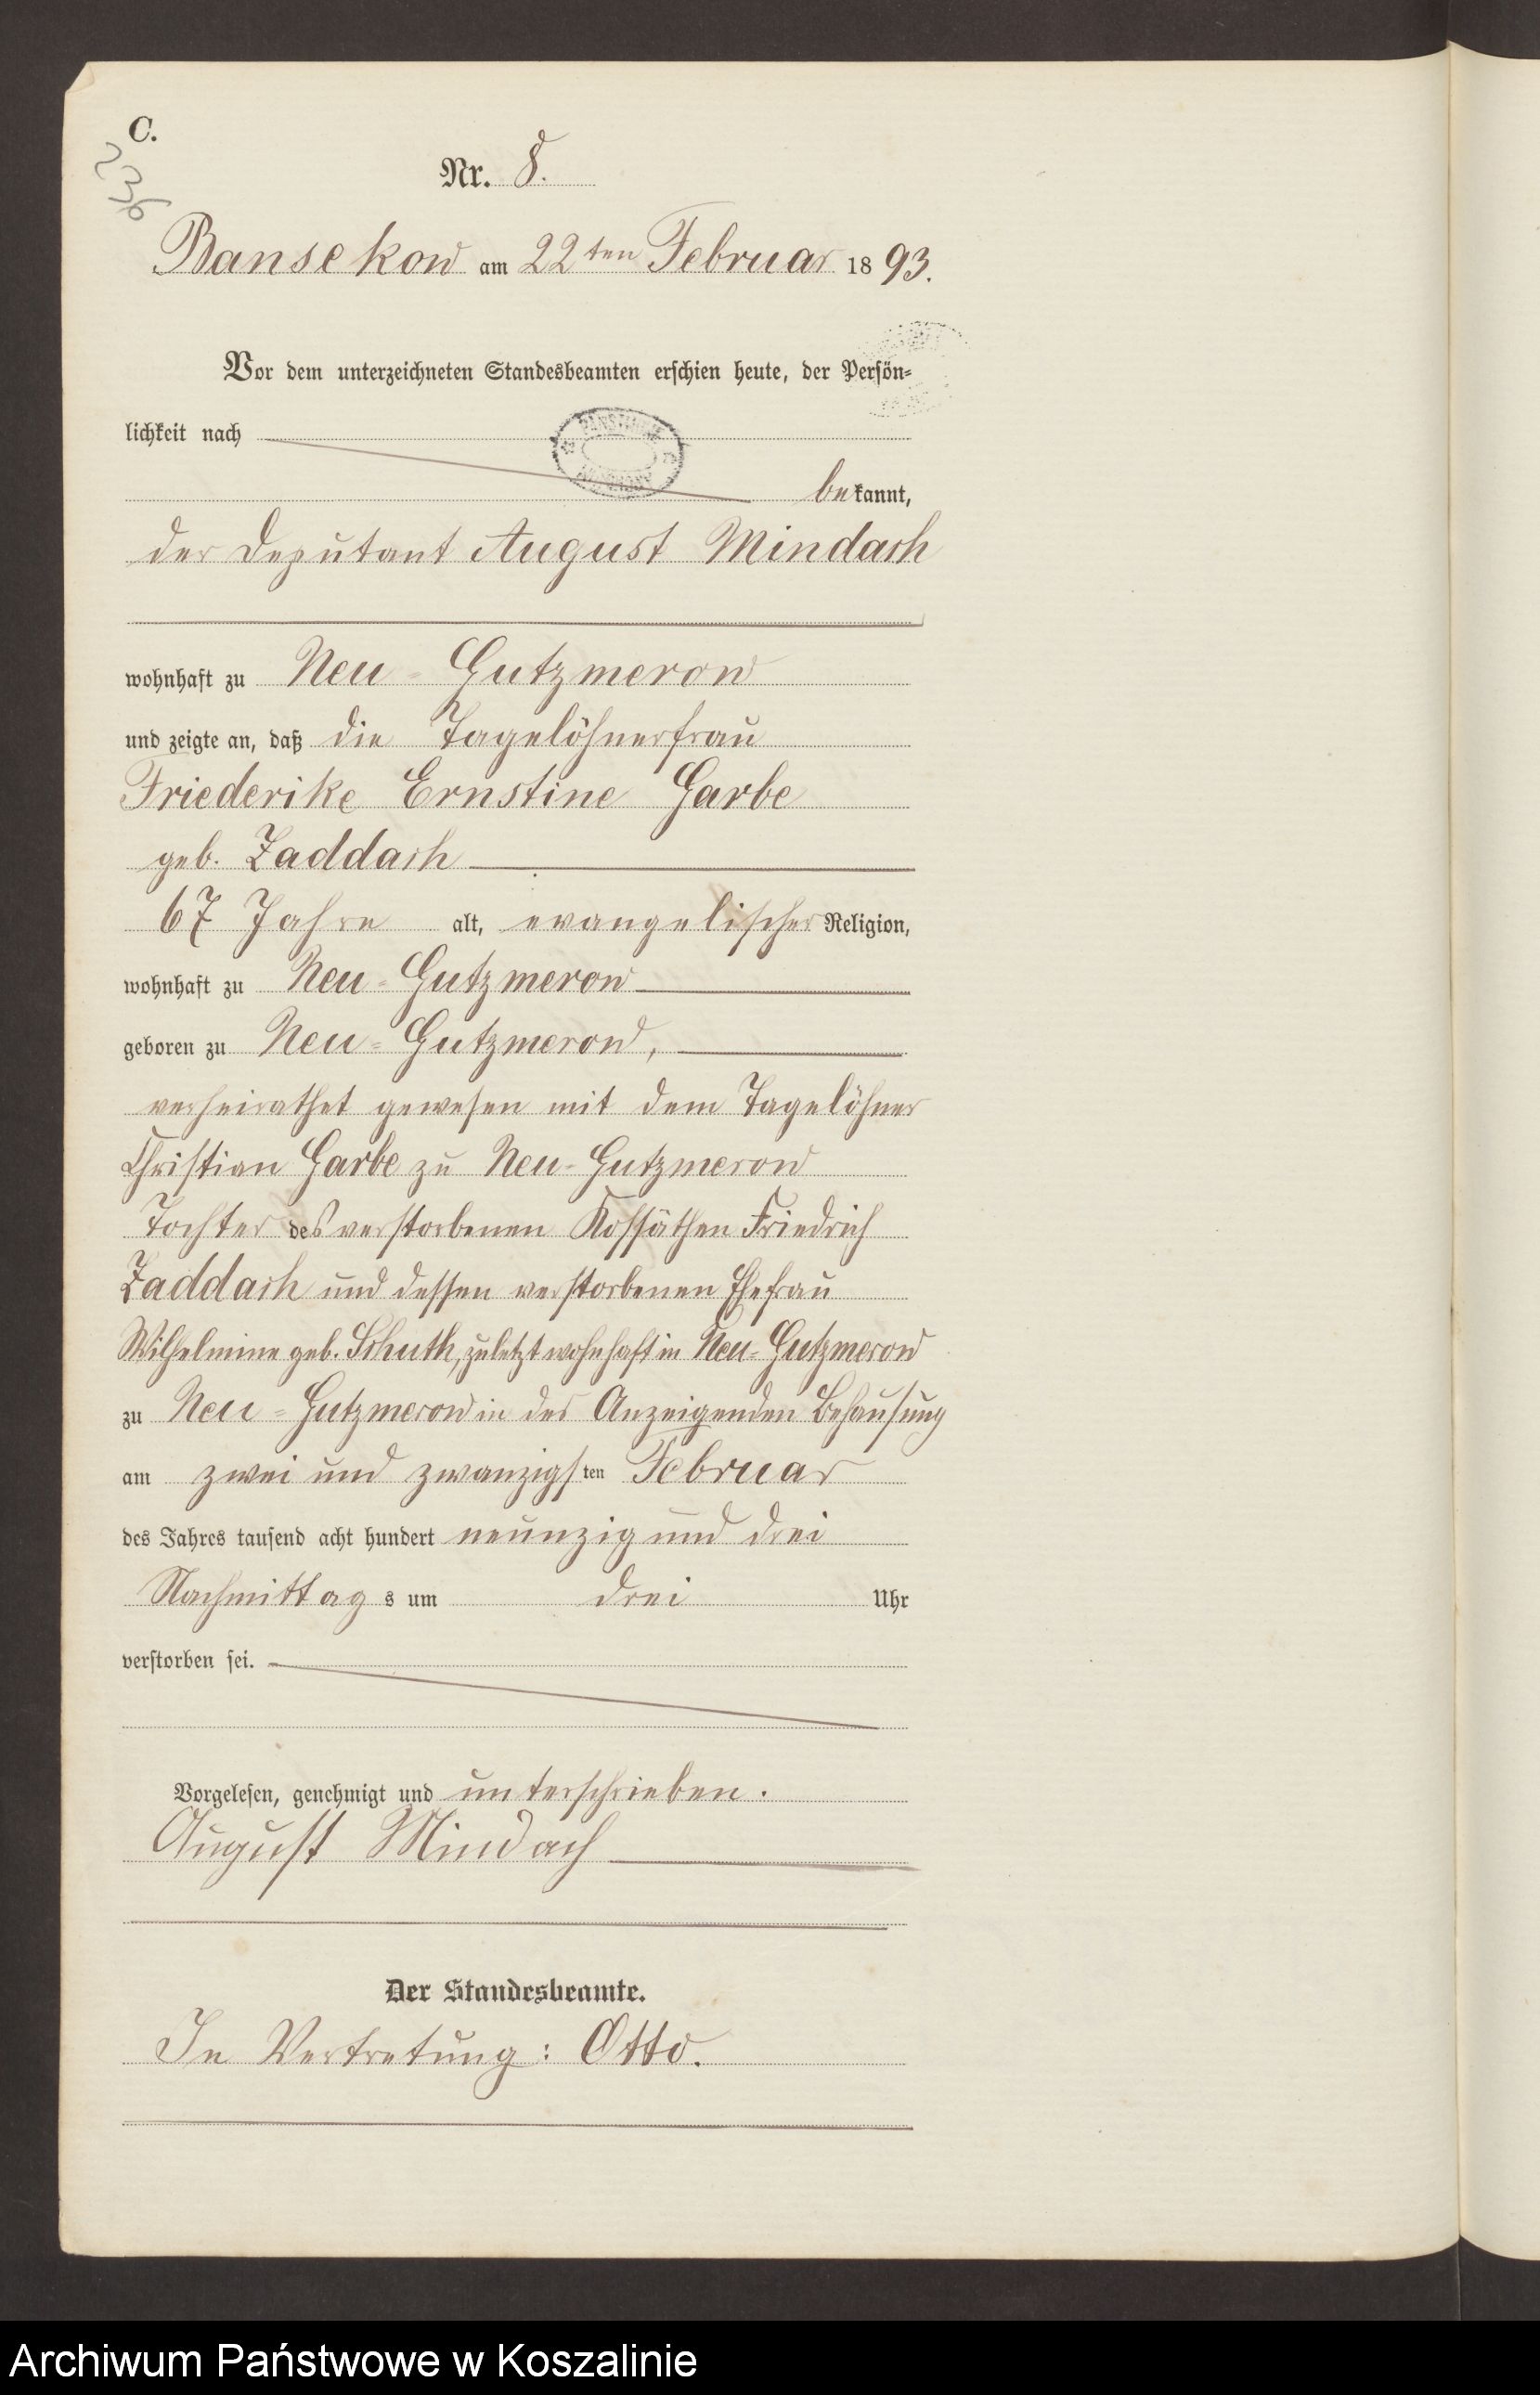 C.
Nr. 8.
Bansekow am 22ten Februar 1893.
Vor dem unterzeichneten Standesbeamten erschien heute, der Persön-
lichkeit nach
bekannt,
der Deputant August Mindach
wohnhaft zu Neu-Gutzmerow
und zeigte an, daß die Tagelöhnerfrau
Friederike Ernstine Garbe
geb. Zaddach
67 Jahre alt, evangelischer Religion,
wohnhaft zu Neu-Gutzmerow
geboren zu Neu-Gutzmerow,
verheirathet gewesen mit dem Tagelöhner
Christian Garbe zu Neu-Gutzmerow
Tochter des verstorbenen Kossäthen Friedrich
Zaddach und dessen verstorbenen Ehefrau
Wilhelmine geb. Schuth, zuletzt wohnhaft in Neu-Gutzmerow
zu Neu-Gutzmerow in des Anzeigenden Behausung
am zwei und zwanzigsten Februar
des Jahres tausend acht hundert neunzig und drei
Nachmittags um drei Uhr
verstorben sei.
Vorgelesen, genehmigt und unterschrieben.
August Mindach
Der Standesbeamte.
In Vertretung: Otto.
Archiwum Państwowe w Koszalinie